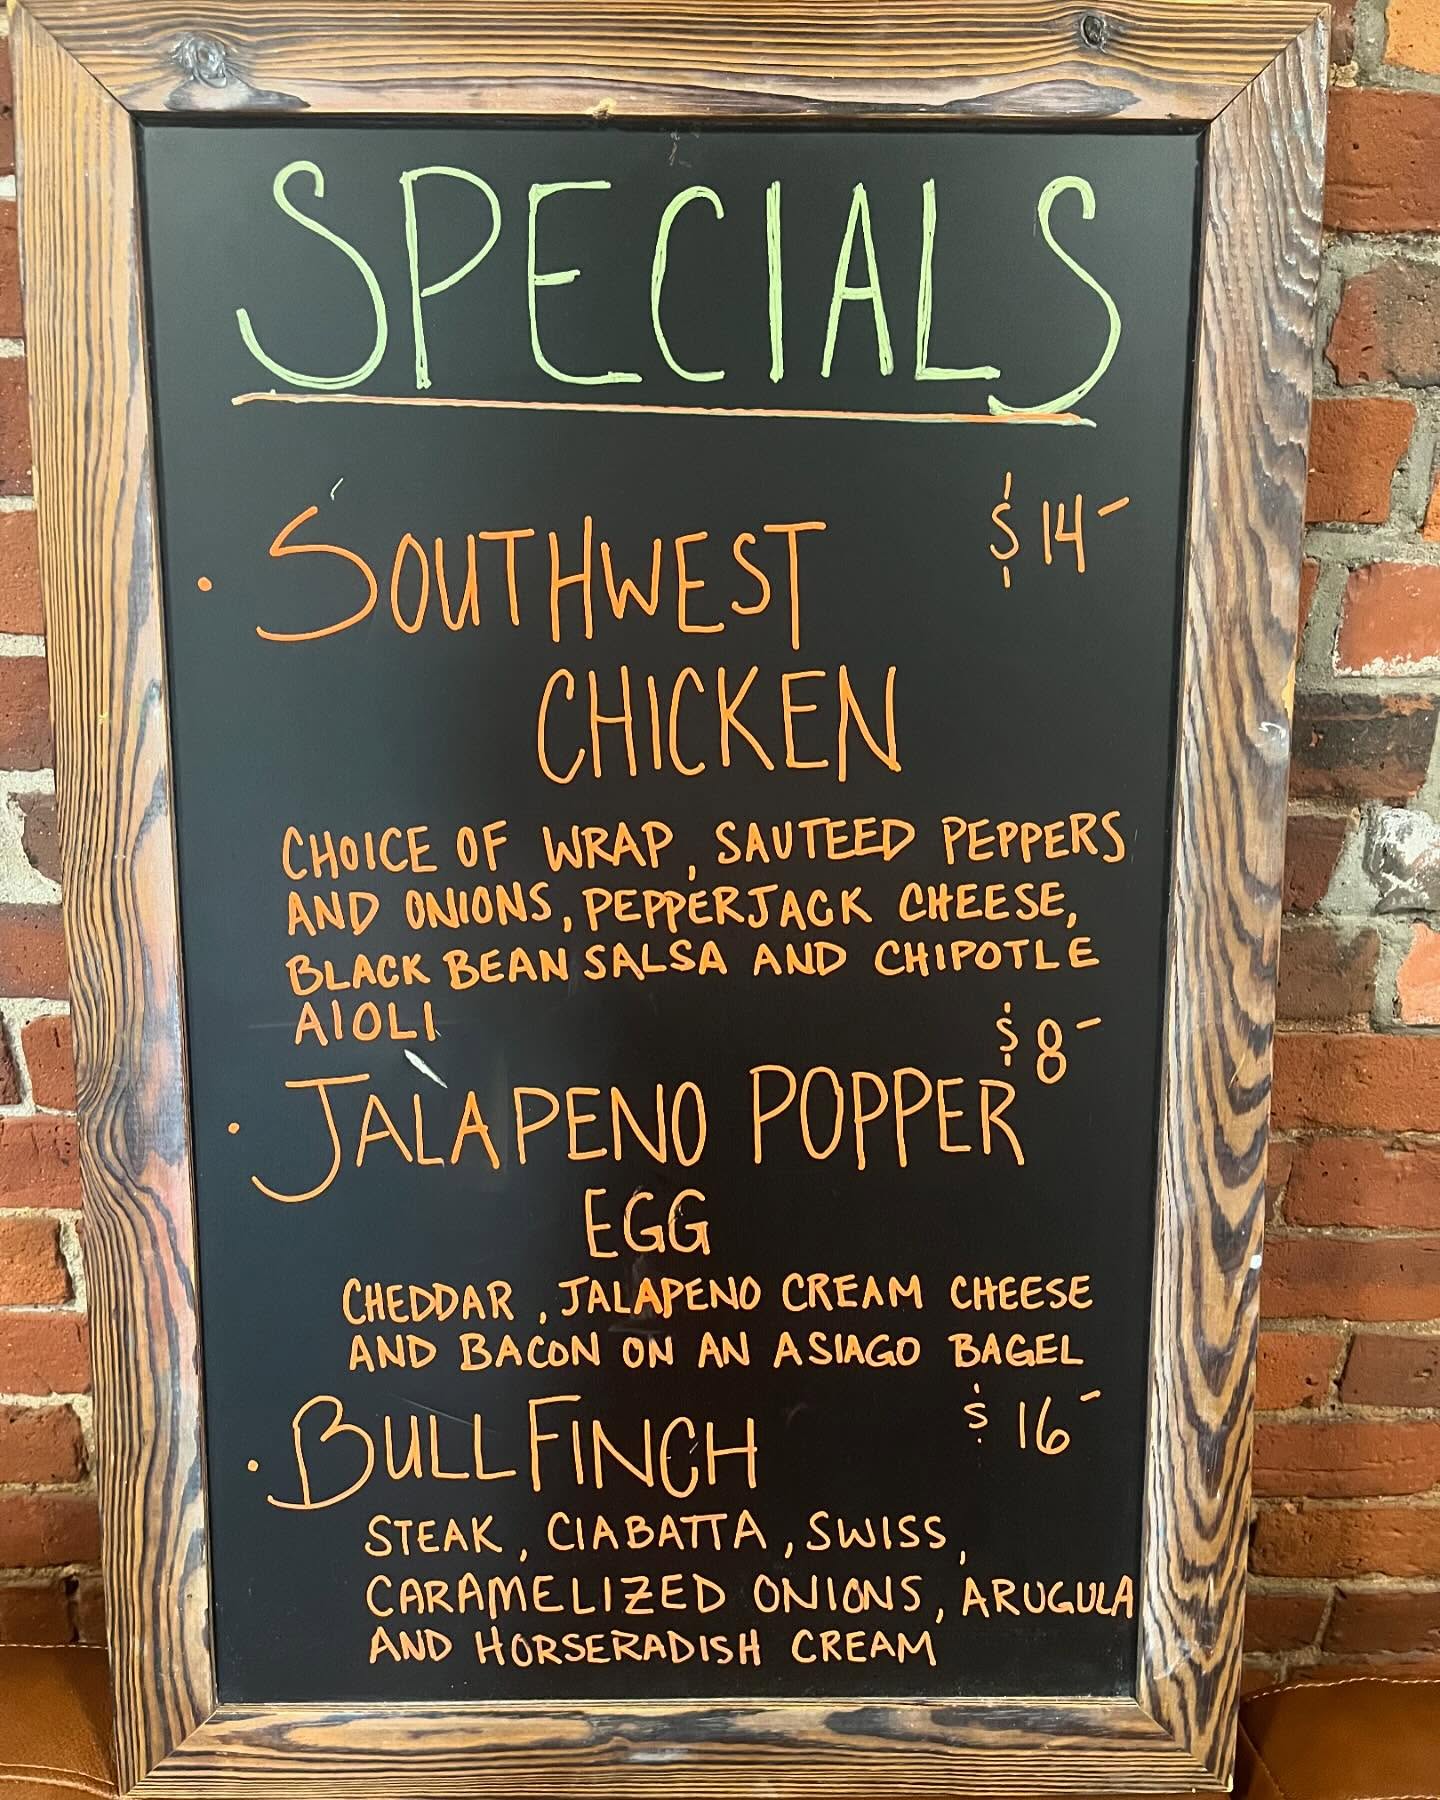 SPECIALS
$14-
• SOUTHWEST
CHICKEN
CHOICE OF WRAP, SAUTEED PEPPERS
AND ONIONS, PEPPERJACK CHEESE,
BLACK BEAN SALSA AND CHIPOTLE
AIOLI
$8-
• JALAPENO POPPER
EGG
CHEDDAR, JALAPENO CREAM CHEESE
AND BACON ON AN ASIAGO BAGEL
• BULLFINCH $16-
STEAK, CIABATTA, SWISS,
CARAMELIZED ONIONS, ARUGULA
AND HORSERADISH CREAM